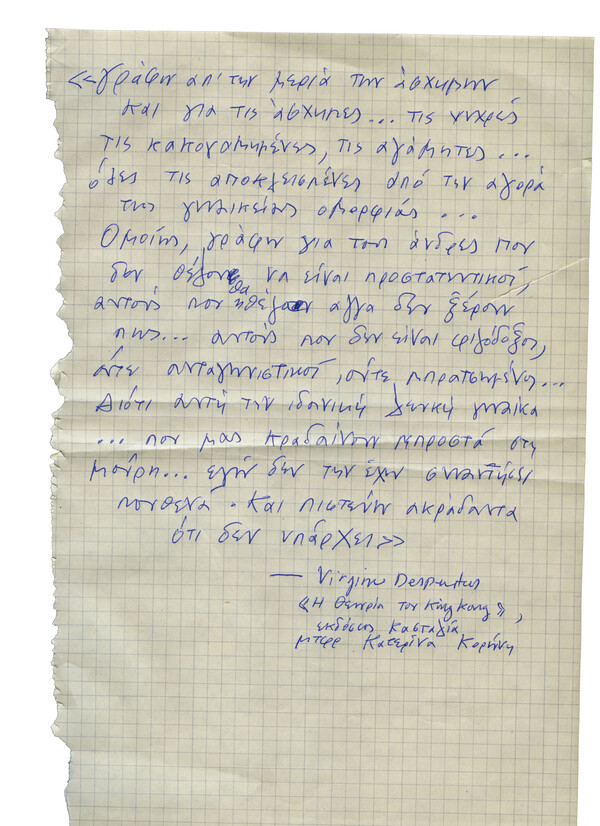 <<γράφω απ' την μεριά των άσχημων
και για τις άσχημες... τις ψυχρές
τις κακογαμημένες, τις αγάμητες...
όλες τις αποκλεισμένες από την αγορά
της γυναικείας ομορφιάς...
Ομοίως, γράφω για τους άνδρες που
δεν θέλουν να είναι προστατευτικοί,
αυτούς που θα ήθελαν αλλά δεν ξέρουν
πως... αυτούς που δεν είναι φιλόδοξοι,
ούτε ανταγωνιστικοί, ούτε μπρατσωμένοι...
Διότι αυτή την ιδανική λευκή γυναίκα
... που μας κραδαίνουν μπροστά στη
μούρη... εγώ δεν την έχω συναντήσει
πουθενά. Και πιστεύω ακράδαντα
ότι δεν υπάρχει>>
— Virginie Despentes
«Η Θεωρία του King Kong»,
εκδόσεις Κασταλία
μτφρ Κατερίνα